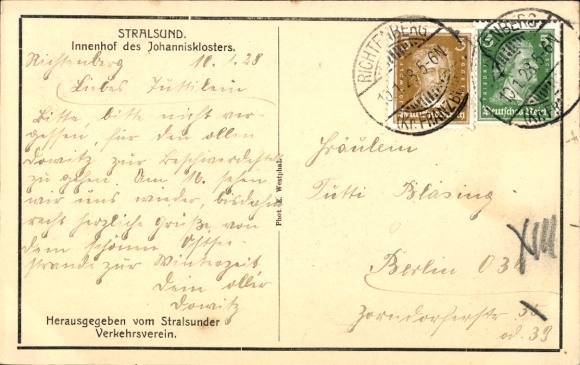 STRALSUND.
Innenhof des Johannisklosters.
Richtenberg 10.1.28
Liebes Tuttilein
Bitte, bitte nicht ver-
gessen, für den ollen
Dowitz zur
zu gehen. Am 16. sehen
wir uns wieder, bis dahin
recht herzliche Grüße von
dem schönen Ostsee-
strande zur Winterzeit
Dein oller
Dowitz
Herausgegeben vom Stralsunder
Verkehrsverein.
Phot. K. Westphal.
RICHTENBERG
10.1.28.5-6N.
(KR. FRANZBG.)
Deutsches Reich
Fräulein
Tutti Bläsing
Berlin O 34
XIII
Zorndorferstr 36
od. 39